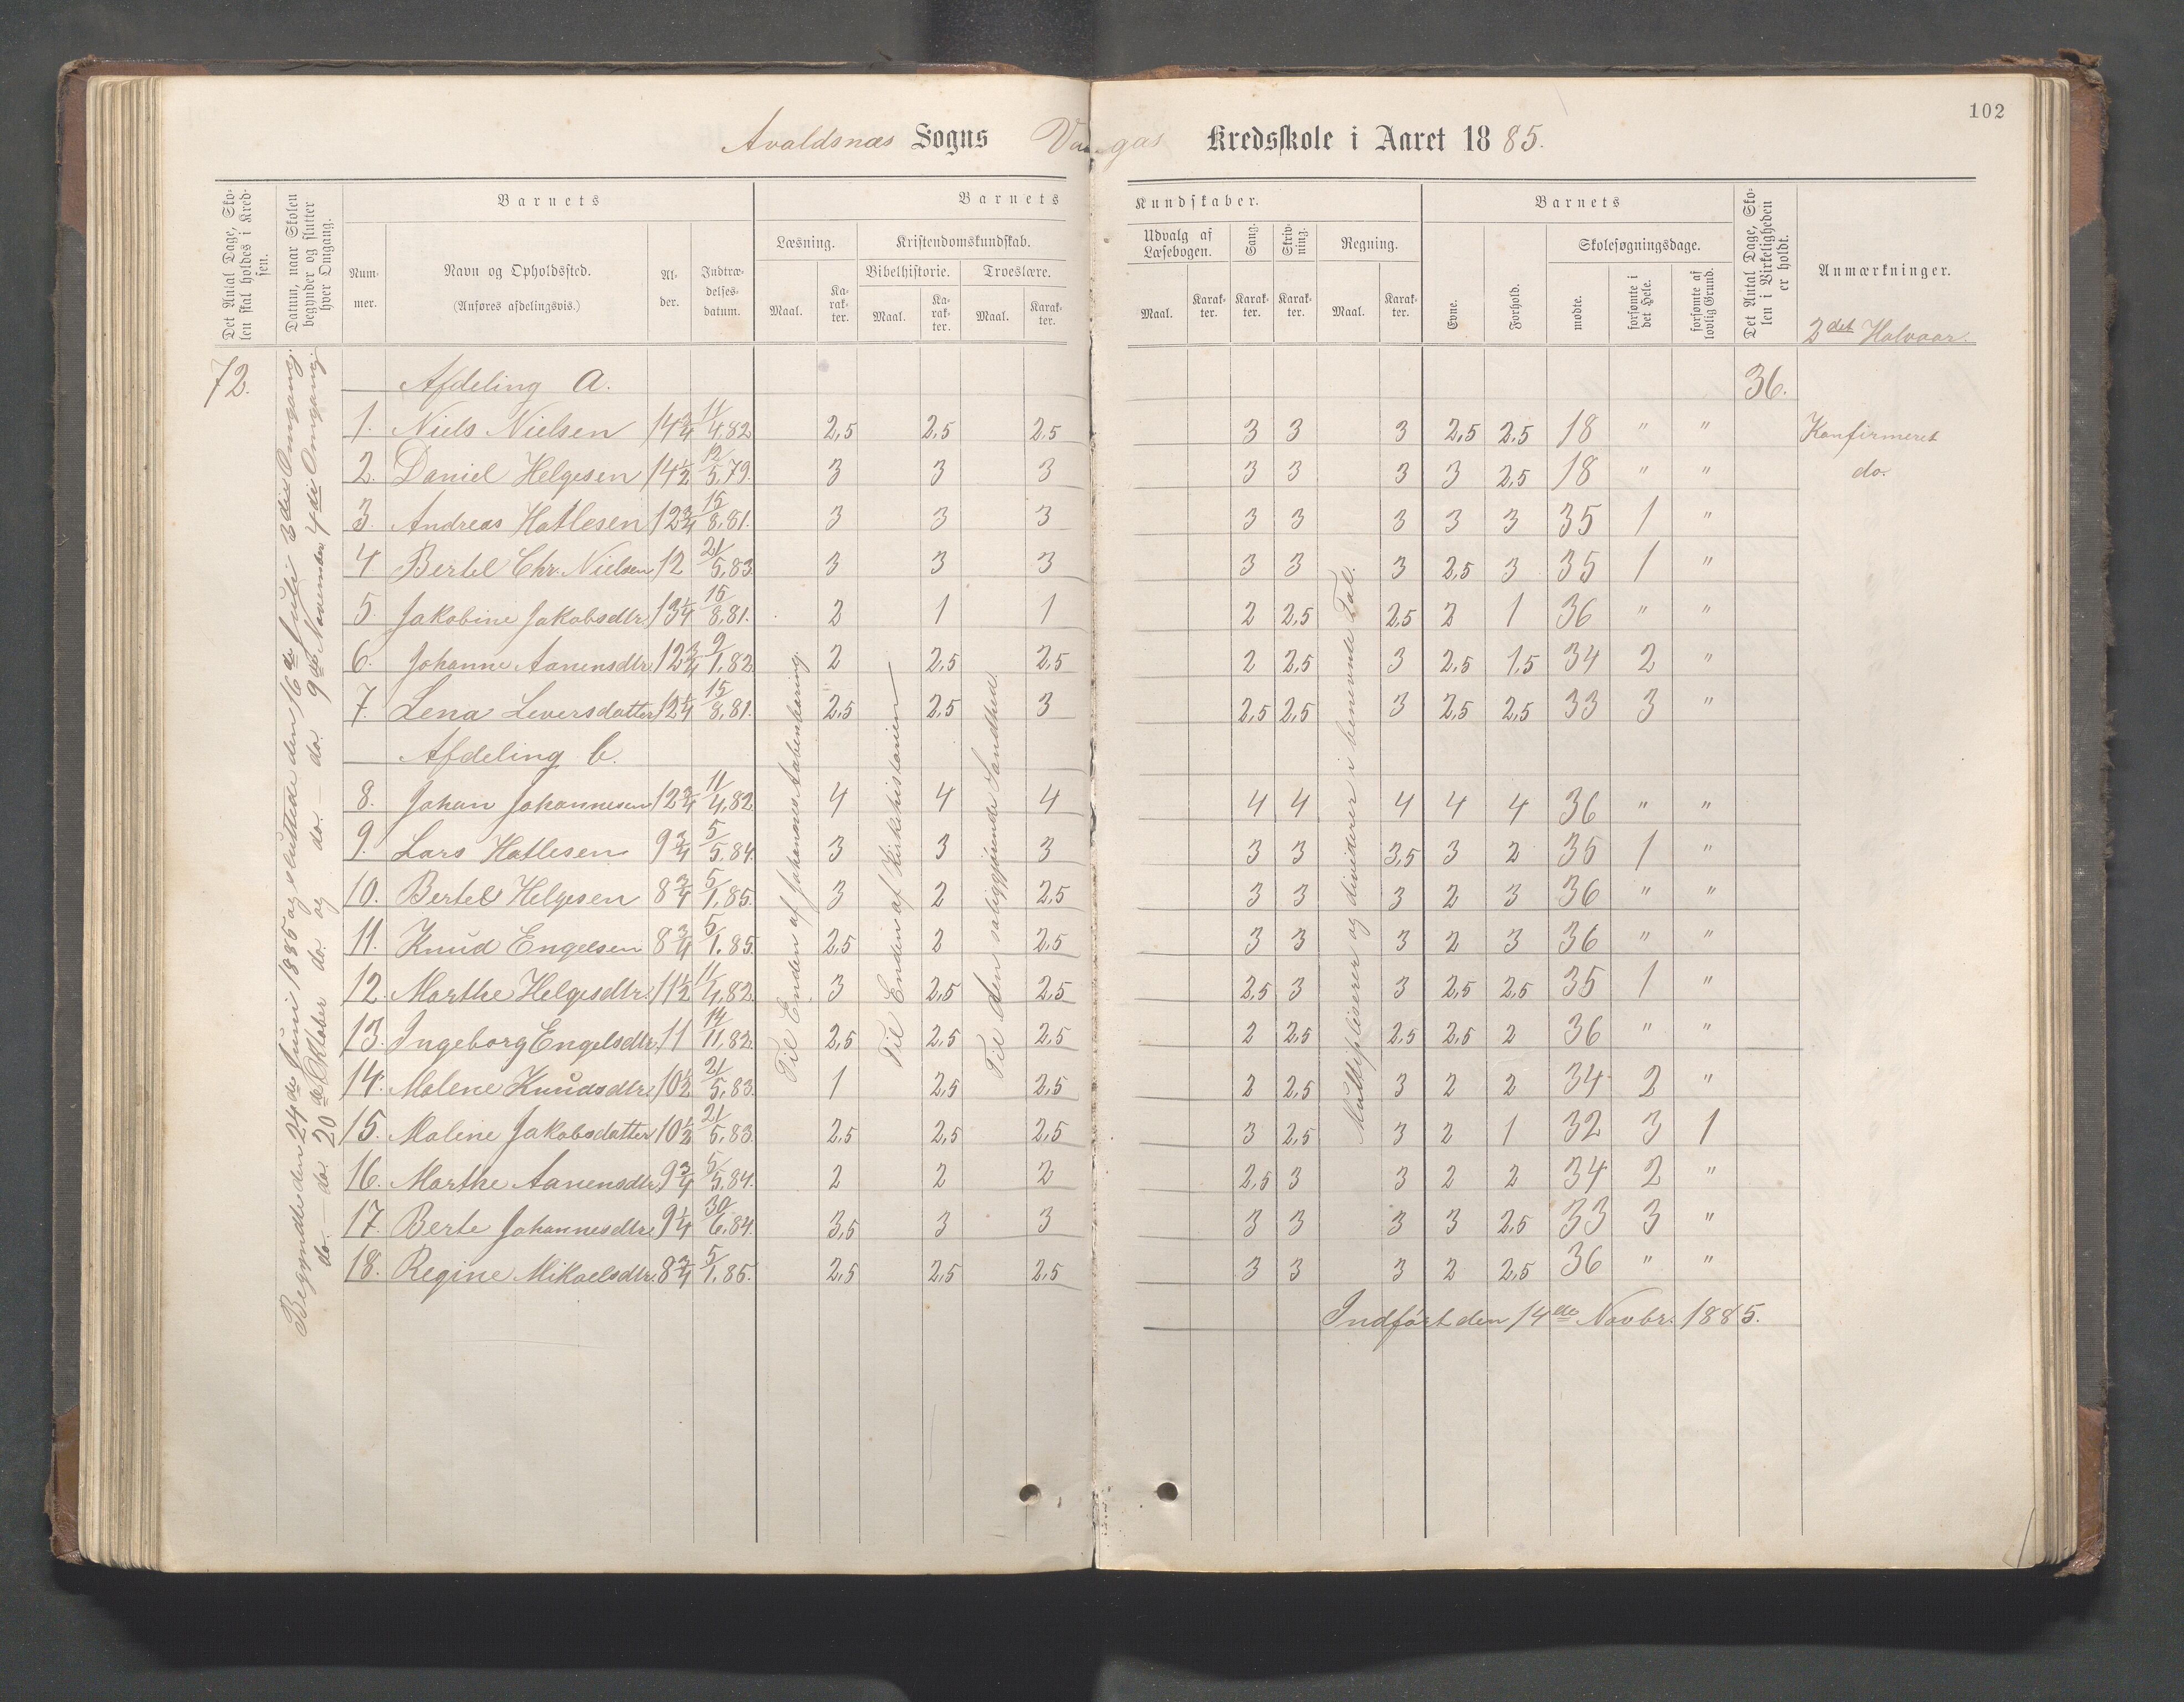 102
Avaldsnæs Sogns Kredsskole i Aaret 1885.
Det Antal Dage, Skolen skal holdes i Kredsen.
Datum, naar Skolen begynder og slutter hver Omgang.
Barnets
Nummer.
Navn og Opholdssted.
(Anføres afdelingsvis.)
Alder.
Indtrædelsesdatum.
Barnets Kundskaber.
Læsning.
Maal.
Karakter.
Kristendomskundskab.
Bibelhistorie.
Maal.
Karakter.
Troeslære.
Maal.
Karakter.
Udvalg af Læsebogen.
Maal.
Karakter.
Sang.
Karakter.
Skrivning.
Karakter.
Regning.
Maal.
Karakter.
Barnets
Evne.
Forhold.
Skolesøgningsdage.
mødte.
forsømte i det Hele.
forsømte af lovlig Grund.
Det Antal Dage, Skolen i Virkeligheden er holdt.
Anmærkninger.
2det Halvaar.
72.
Begyndte den 24de Juni 1885 og sluttede den 16de Juli 3die Omgang.
do. — do. 20de Oktober do. og do. — do. 9de November 4de Omgang
Afdeling a. 36.
1. Niels Nielsen 14 3/4 11/4,82 2,5 2,5 2,5 3 3 3 2,5 2,5 18 " " Konfirmeret
2. Daniel Helgesen 14 1/2 12/5,79. 3 3 3 3 3 3 3 2,5 18 " " do.
3. Andreas Hatlesen 12 3/4 15/8,81. 3 3 3 3 3 3 3 3 35 1 "
4 Bertel Chr. Nielsen 12 21/5,83 3 3 3 3 3 3 2,5 3 35 1 "
5. Jakobine Jakobsdtr. 13 1/4 15/8,81. 2 1 1 2 2,5 2,5 2 1 36 " "
6. Johanne Aanensdtr. 12 3/4 9/1,82 2 2,5 2,5 2 2,5 3 2,5 1,5 34 2 "
7. Lena Leversdatter 12 1/4 15/8,81. 2,5 2,5 3 2,5 2,5 3 2,5 2,5 33 3 "
Afdeling b.
8. Johan Johannesen 12 3/4 11/4,82 4 4 4 4 4 4 4 4 36 " "
9. Lars Hatlesen 9 3/4 5/5,84. 3 3 3 3 3 3,5 3 2 35 1 "
10. Bertel Helgesen 8 3/4 5/1,85. 3 2 2,5 3 3 3 2 3 36 " "
11. Knud Engelsen 8 3/4 5/1.85 2,5 2 2,5 3 3 3 2 3 36 " "
12. Marthe Helgesdtr. 11 1/2 11/4,82 3 2,5 2,5 2,5 3 3 2,5 2,5 35 1 "
13. Ingeborg Engelsdtr. 11 14/11,82 2,5 2,5 2,5 2 2,5 2,5 2,5 2 36 " "
14. Malene Knudsdtr. 10 1/2 21/5,83. 1 2,5 2,5 2 2,5 3 2 2 34 2 "
15. Malene Jakobsdatter 10 1/2 21/5,83. 2,5 2,5 2,5 3 2,5 3 2 1 32 3 1
16. Marthe Aanensdtr. 9 3/4 5/5,84. 2 2 2 2,5 3 3 2 2 34 2 "
17. Berte Johannesdtr. 9 1/4 30/6,84. 3,5 3 3 3 3 3 3 2,5 33 3 "
18. Regine Mikaelsdtr. 8 3/4 5/1,85. 2,5 2,5 2,5 3 3 3 2 2,5 36 " "
Til Enden af Johannes Aabenbaring.
Til Enden af Kirkehistorien
Til den saliggjørende Sandhed.
Multipliserer og dividerer i benævnte Tal.
Indført den 14de Novbr. 1885.